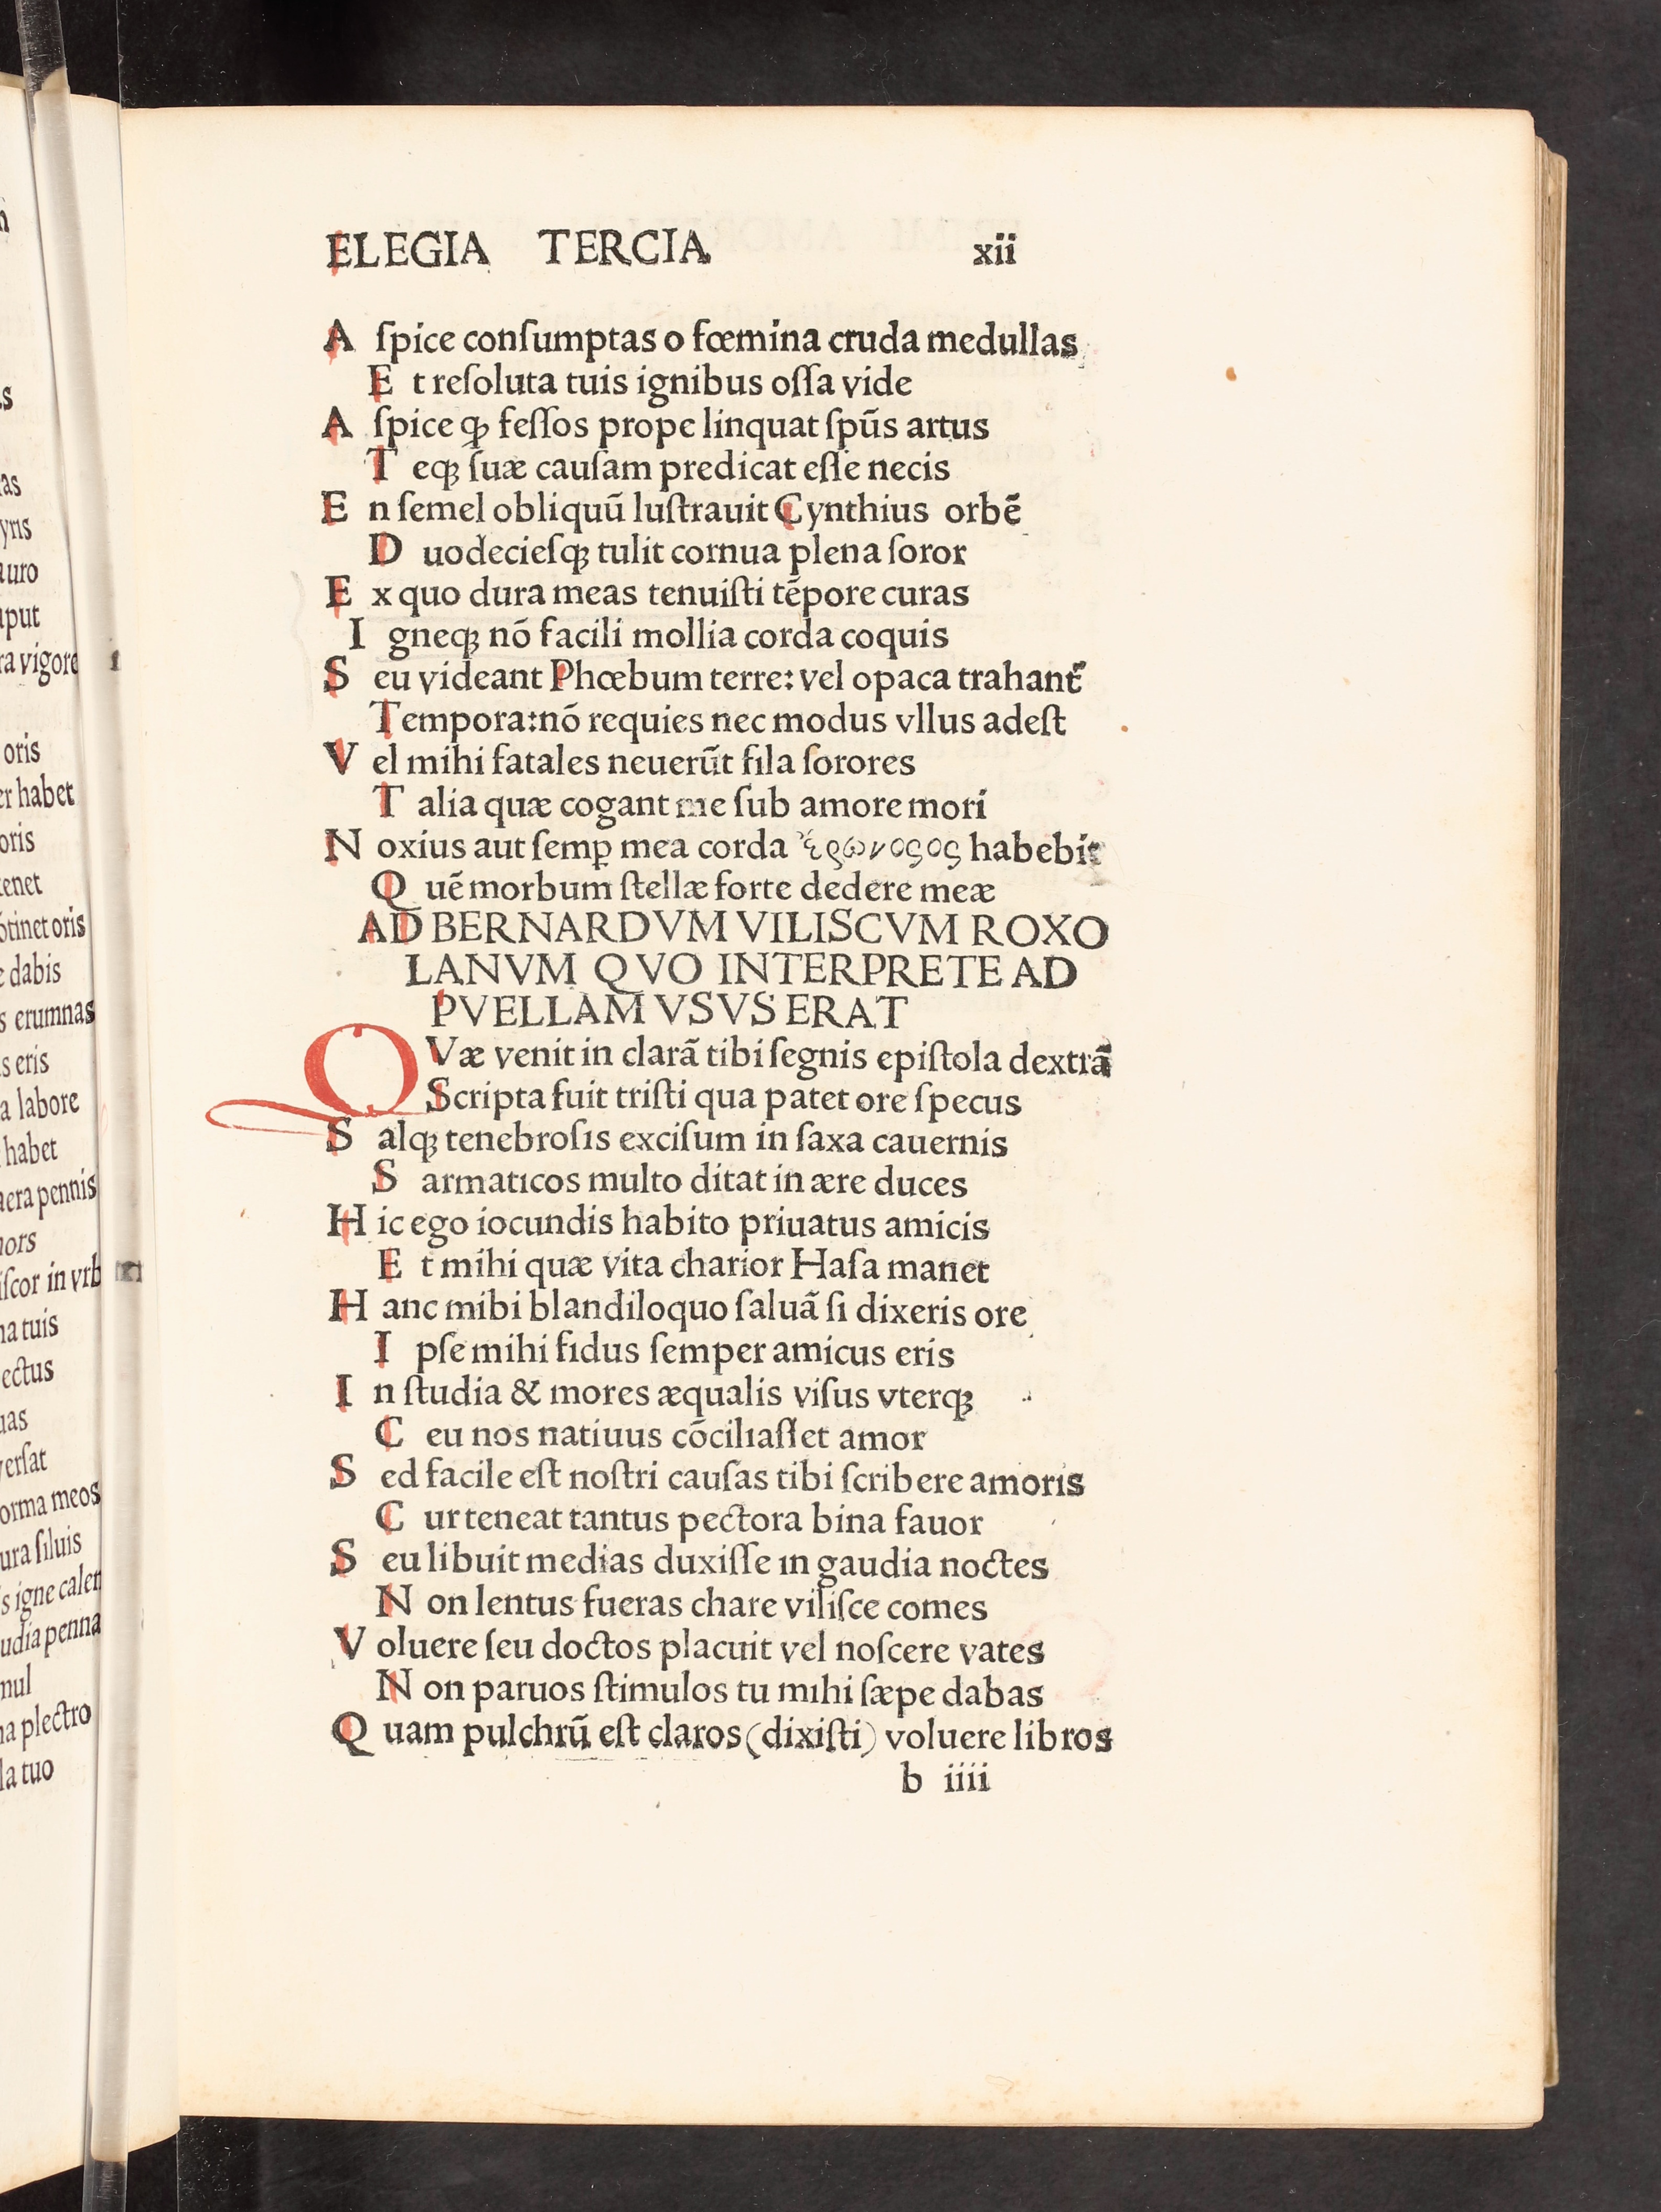 ELEGIA TERCIA xii
A ſpice conſumptas o fœmina cruda medullas
E t reſoluta tuis ignibus oſſa vide
A ſpice ꝙ feſſos prope linquat ſpūs artus
T eqꝫ ſuæ cauſam predicat eſſe necis
E n ſemel obliquū luſtrauit Cynthius orbē
D uodecieſqꝫ tulit cornua plena ſoror
E x quo dura meas tenuiſti tēpore curas
I gneqꝫ nō facili mollia corda coquis
S eu videant Phœbum terre: vel opaca trahant᷑
Tempora:nō requies nec modus vllus adeſt
V el mihi fatales neuerūt fila ſorores
T alia quæ cogant me ſub amore mori
N oxius aut ſemꝑ mea corda habebit
Q uē morbum ſtellæ forte dedere meæ
AD BERNARDVM VILISCVM ROXO
LANVM QVO INTERPRETE AD
PVELLAM VSVS ERAT
QVæ venit in clarā tibi ſegnis epiſtola dextrā
Scripta fuit triſti qua patet ore ſpecus
S alqꝫ tenebroſis exciſum in ſaxa cauernis
S armaticos multo ditat in ære duces
H ic ego iocundis habito priuatus amicis
E t mihi quæ vita charior Haſa manet
H anc mibi blandiloquo ſaluā ſi dixeris ore
I pſe mihi fidus ſemper amicus eris
I n ſtudia & mores æqualis viſus vterqꝫ
C eu nos natiuus cōciliaſſet amor
S ed facile eſt noſtri cauſas tibi ſcribere amoris
C ur teneat tantus pectora bina fauor
S eu libuit medias duxiſſe in gaudia noctes
N on lentus fueras chare viliſce comes
V oluere ſeu doctos placuit vel noſcere vates
N on paruos ſtimulos tu mihi ſæpe dabas
Q uam pulchrū eſt claros (dixiſti) voluere libros
b iiii